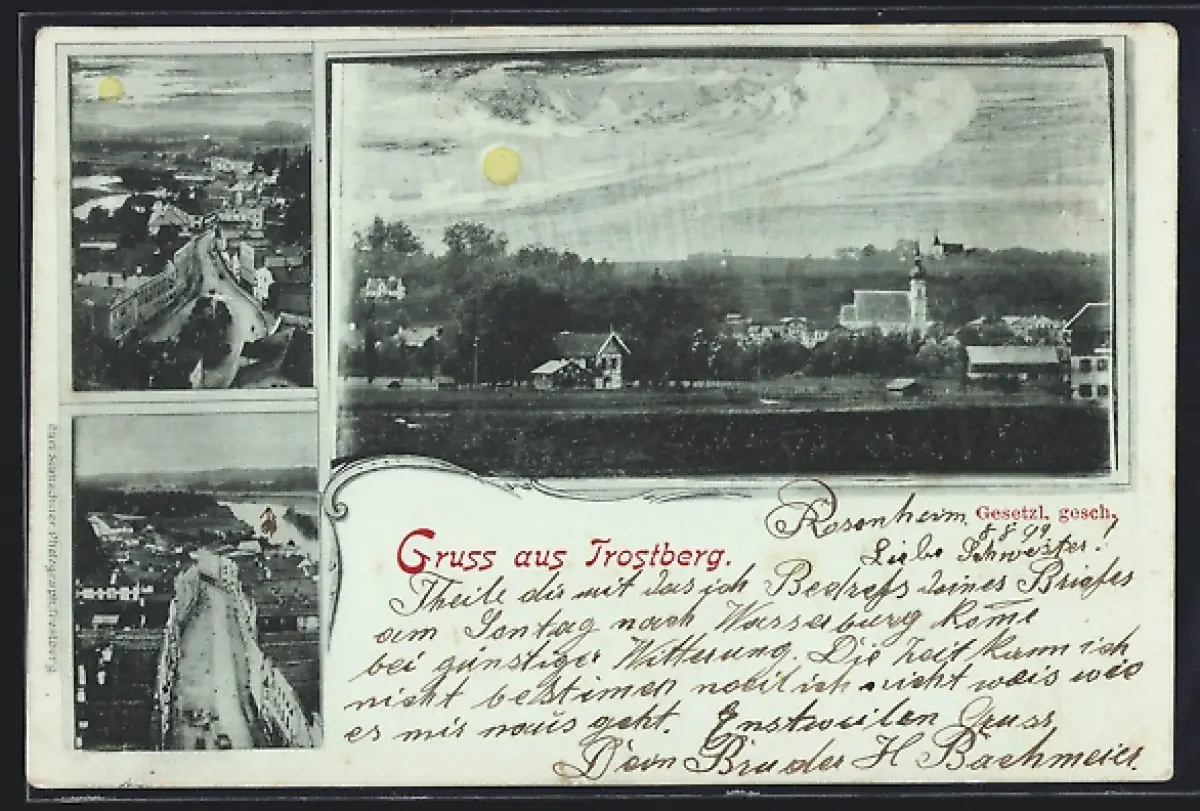 Rosenheim Gesetzl. gesch.
8.8.99
Liebe Schwester!
Gruss aus Trostberg.
Theile dir mit das ich Bedrefs deines Briefes
am Sontag nach Wasserburg kome
bei günstiger Witterung. Die Zeit kann ich
nicht bestimen weil ich nicht weis wie
es mir naus geht. Enstweilen Gruss
Dein Bruder H Bachmeier.
Photograph, Trostberg